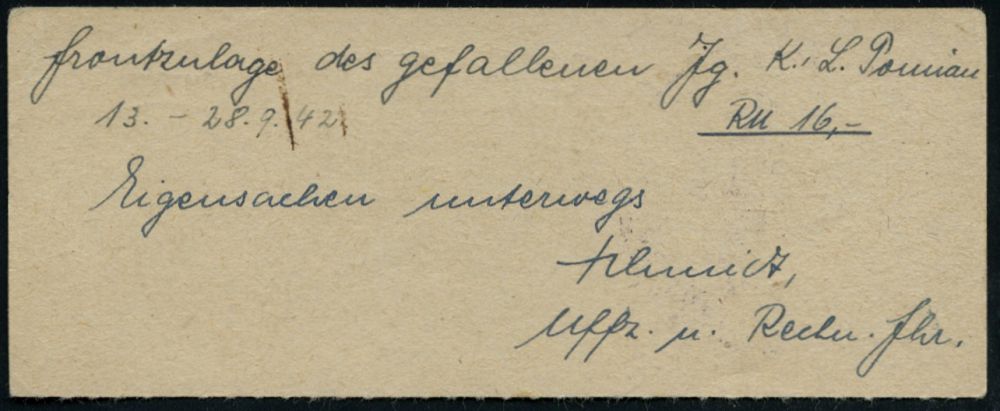 Frontzulage des gefallenen Jg. K. L. Pomian
13. - 28.9.42
RM 16,-
Eigensachen unterwegs
Schmidt,
Uffz. u. Rechn. Fhr.